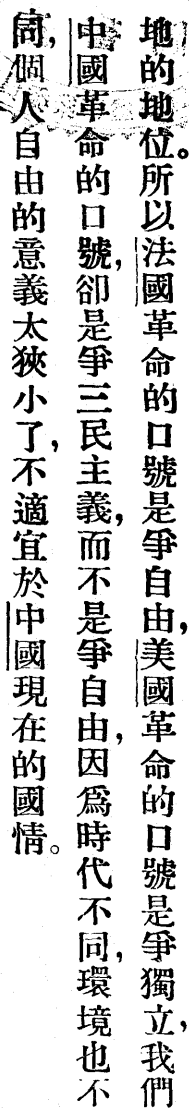 地的地位。所以法國革命的口號是爭自由，美國革命的口號是爭獨立，我們
中國革命的口號，卻是爭三民主義，而不是爭自由，因爲時代不同，環境也不
同，個人自由的意義太狹小了，不適宜於中國現在的國情。